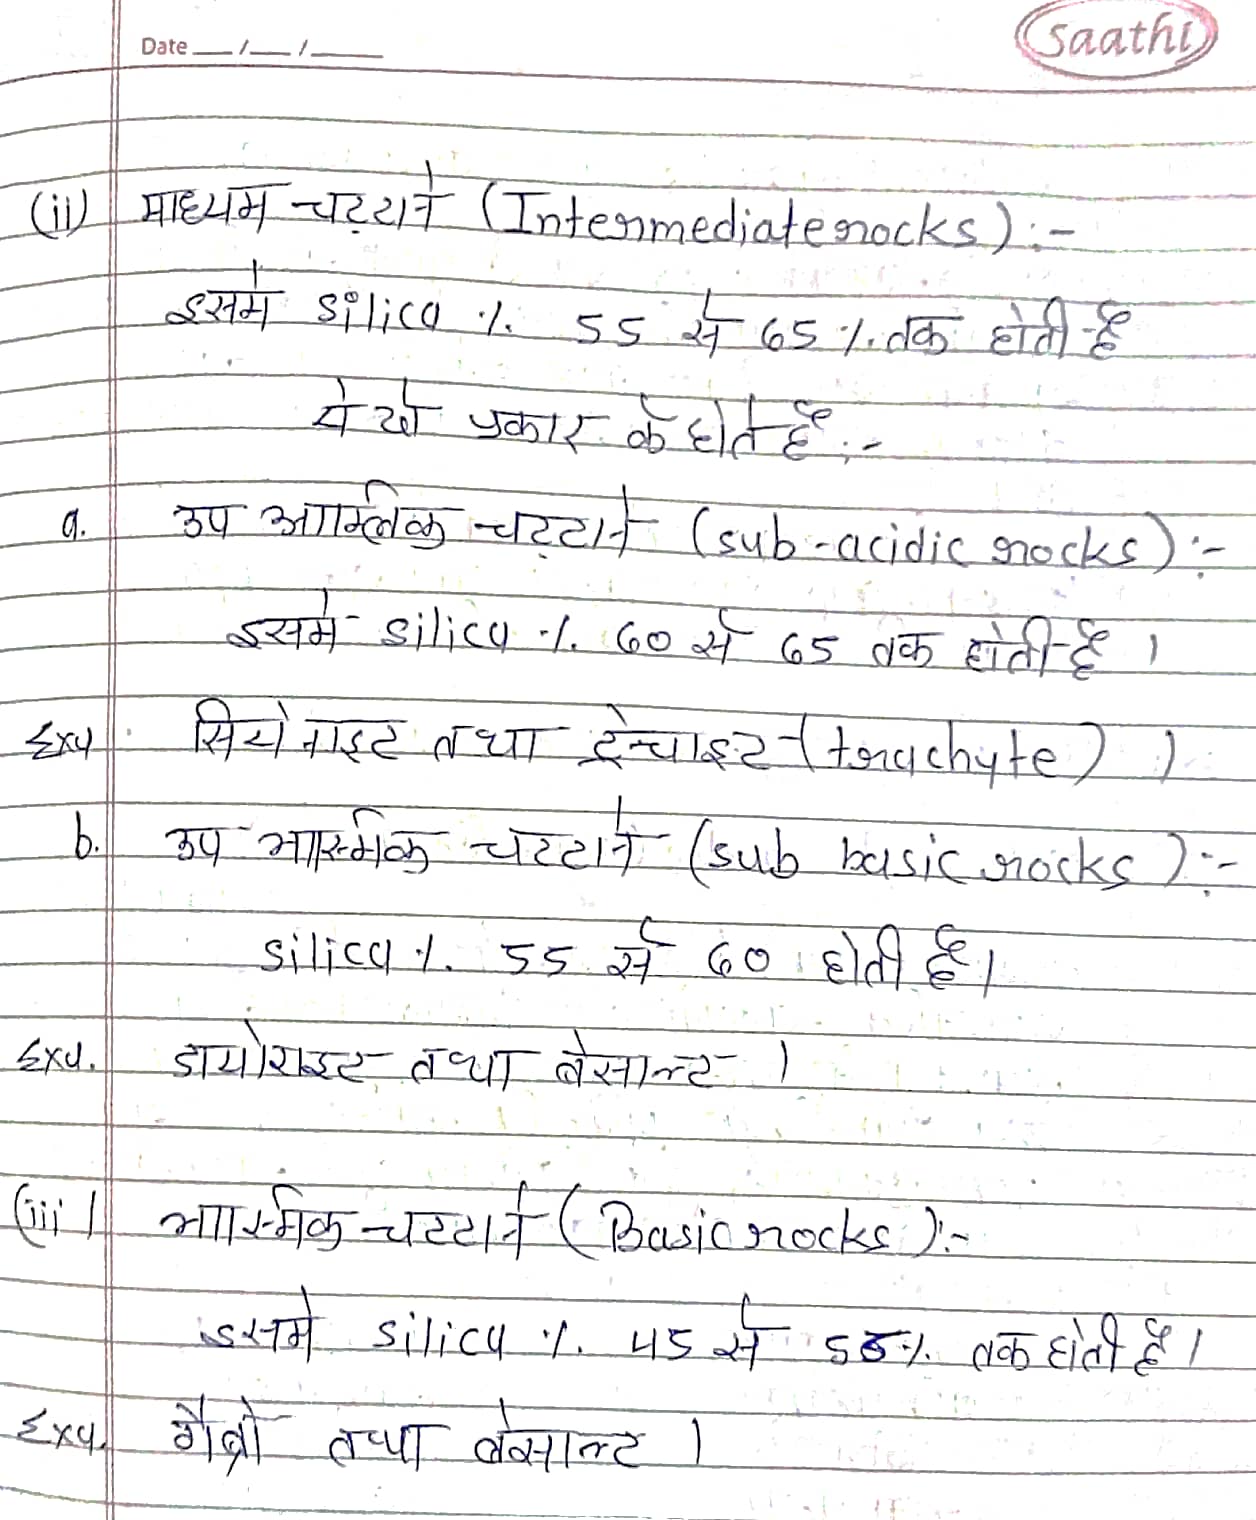 Date __/__/____
Saathi
(ii) माध्यम चट्टाने (Intermediate rocks) :-
इसमे silica % 55 से 65 % तक होती है
ये दो प्रकार के होते है :-
a. उप आम्लिक चट्टाने (sub-acidic rocks) :-
इसमे silica % 60 से 65 तक होती है ।
Exa. सियेनाइट तथा ट्रेचाइट (trachyte) ।
b. उप भास्मिक चट्टाने (sub basic rocks) :-
silica % 55 से 60 होती है ।
Exa. डायोराइट तथा बेसाल्ट ।
(iii) भास्मिक चट्टाने (Basic rocks) :-
इसमे silica % 45 से 55 % तक होती है ।
Exa. गैब्रो तथा बेसाल्ट ।